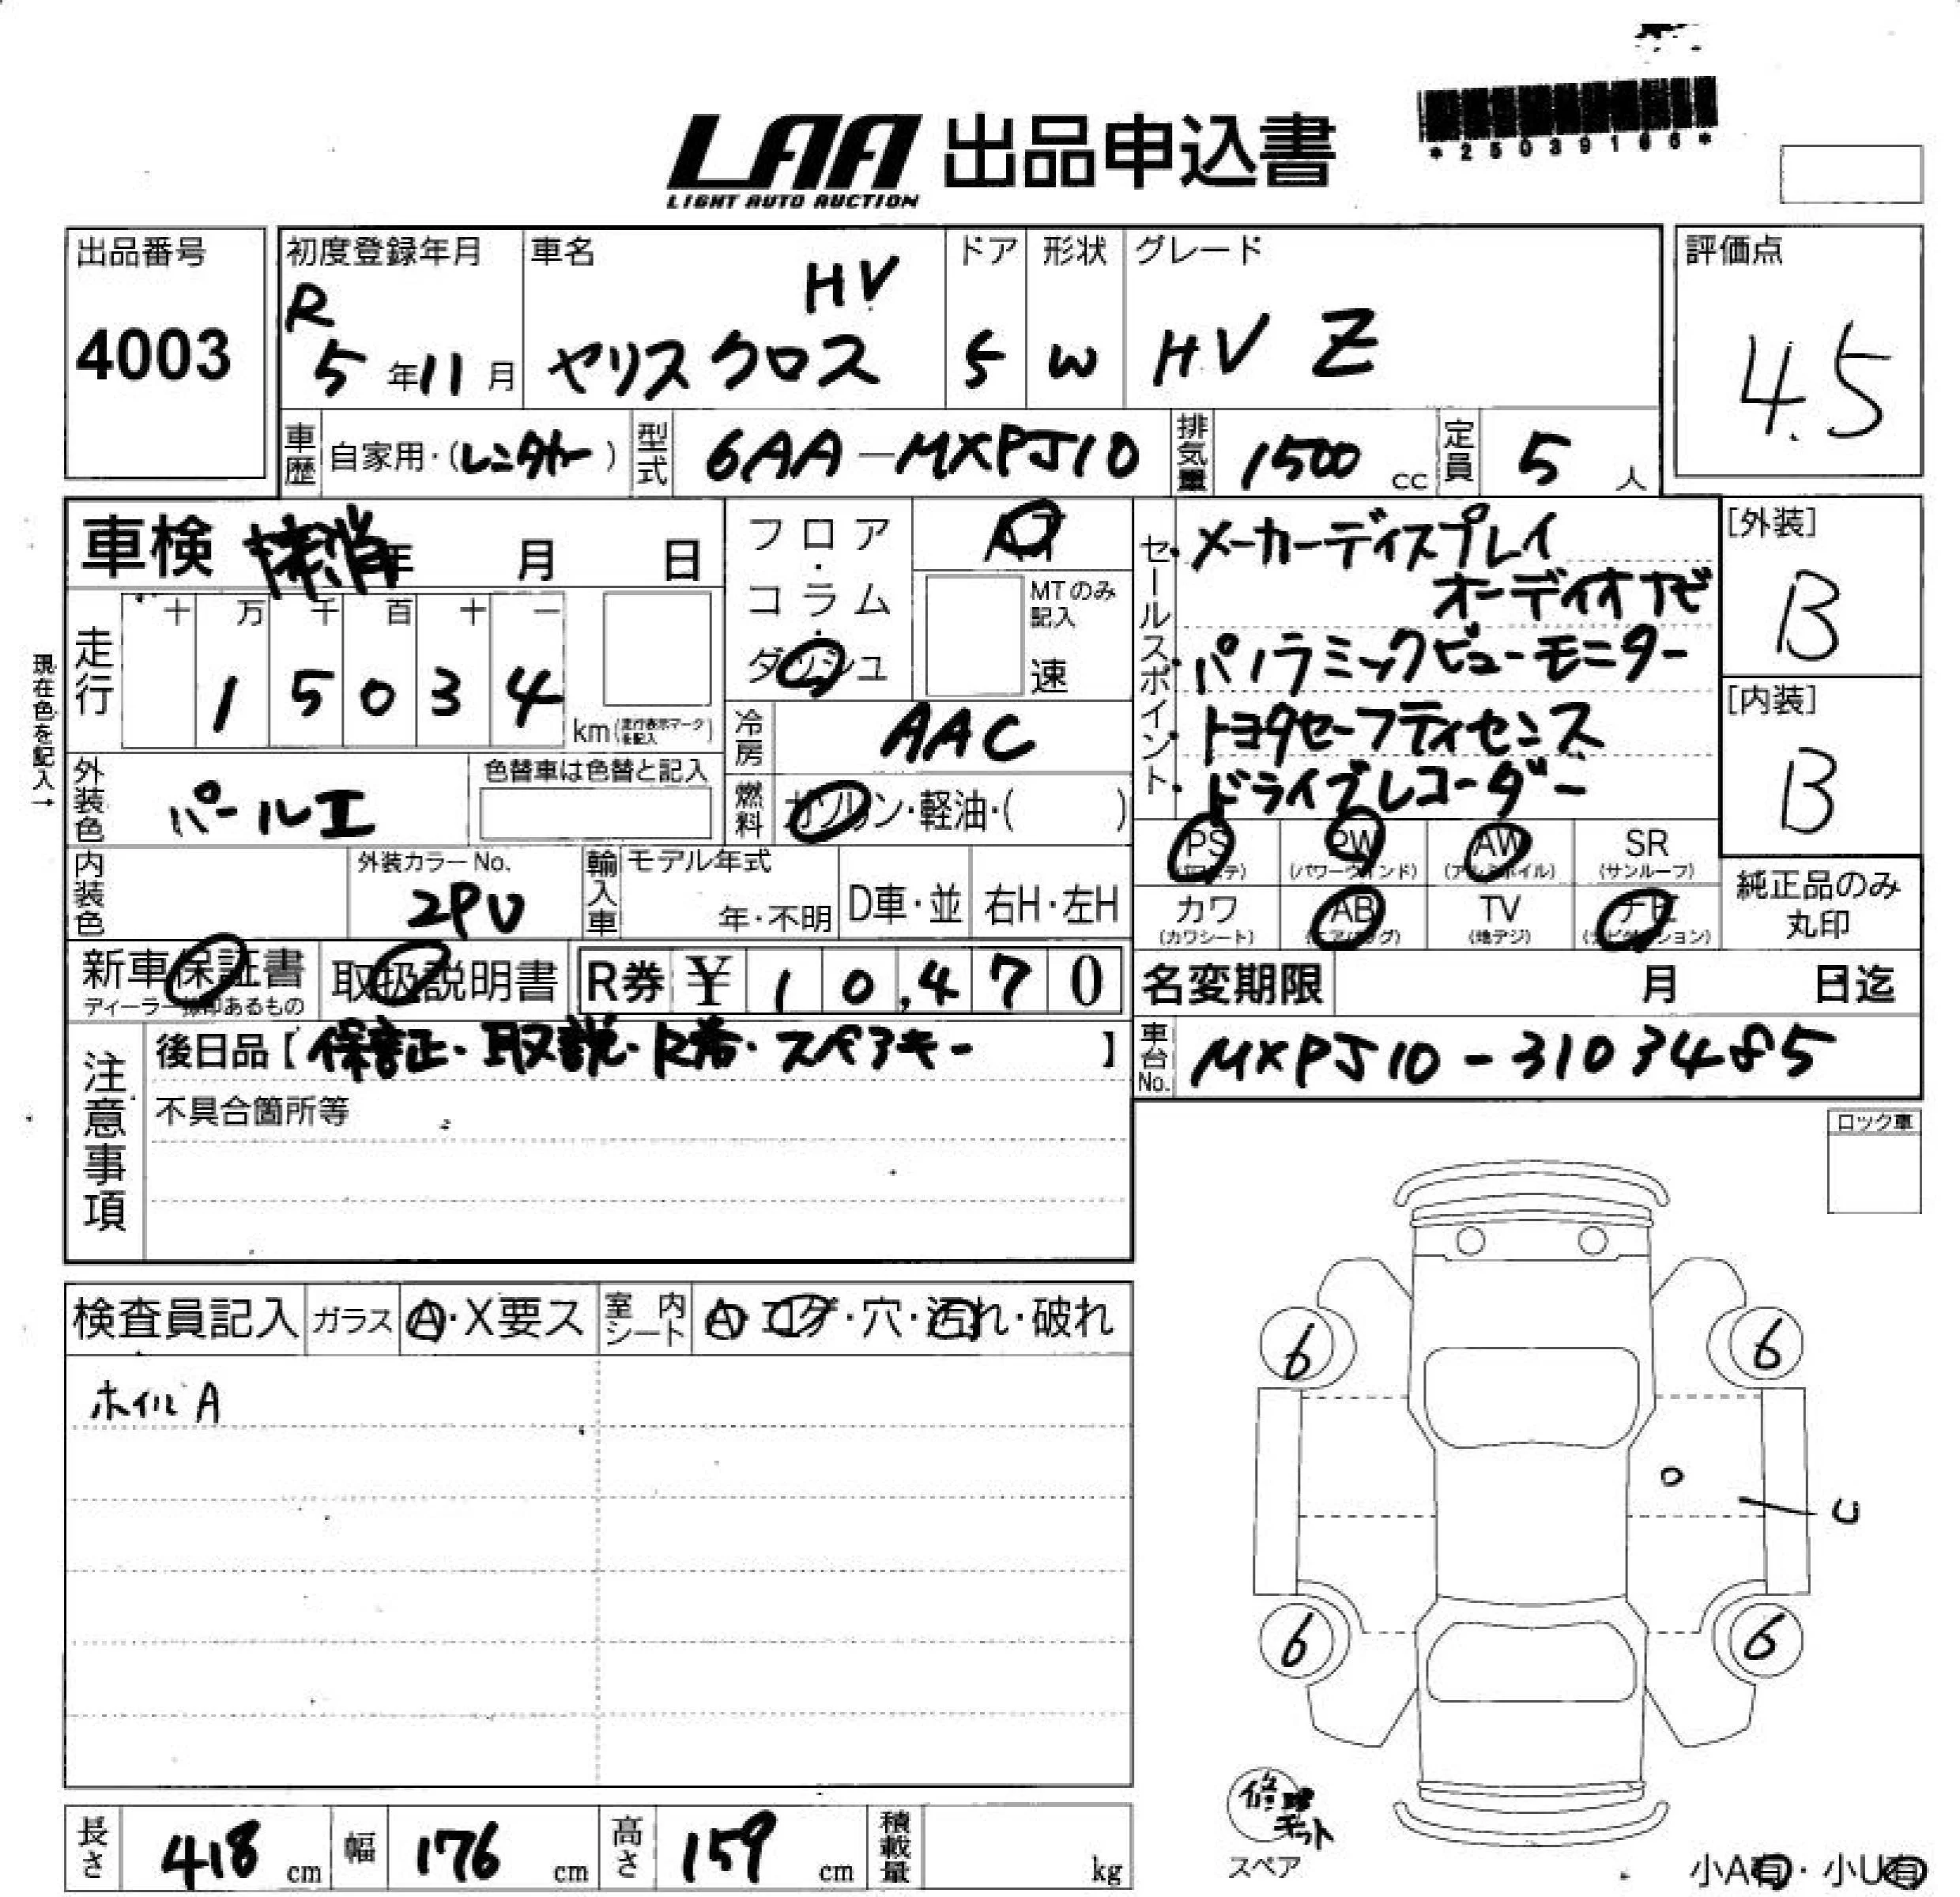 LAA 出品申込書
LIGHT AUTO AUCTION
*25039166*
出品番号
4003
初度登録年月
R
5年11月
車名
HV
ヤリスクロス
ドア
5
形状
W
グレード
HV Z
評価点
4.5
車歴 自家用・(レンタカー)
型式 6AA-MXPJ10
排気量 1500 cc
定員 5 人
車検 抹消 年 月 日
現在色を記入→
走行
十 万 千 百 十 一
1 5 0 3 4
km(走行表示マークを記入)
フロア・コラム・ダッシュ
AT
MTのみ記入
速
冷房 AAC
燃料 ガソリン・軽油・( )
セールスポイント
・メーカーディスプレイ
オーディオナビ
・パノラミックビューモニター
・トヨタセーフティセンス
・ドライブレコーダー
[外装]
B
[内装]
B
外装色 パールエ
色替車は色替と記入
内装色
外装カラーNo.
2PU
輸入車 モデル年式
年・不明 D車・並 右H・左H
PS PW AW SR
(パワステ) (パワーウインド) (アルミホイル) (サンルーフ)
カワ AB TV ナビ
(カワシート) (エアバッグ) (地デジ) (ナビゲーション)
純正品のみ
丸印
新車保証書
ディーラー捺印あるもの
取扱説明書
R券 ¥ 10,470
名変期限 月 日迄
車台No. MXPJ10-3103485
注意事項
後日品【保証・取説・R券・スペアキー】
不具合箇所等
ロック車
検査員記入 ガラス A・X要ス 室内シート A・コゲ・穴・汚れ・破れ
ホイルA
6 6
U
6 6
修理キット
スペア
長さ 418 cm 幅 176 cm 高さ 159 cm 積載量 kg
小A有・小U有